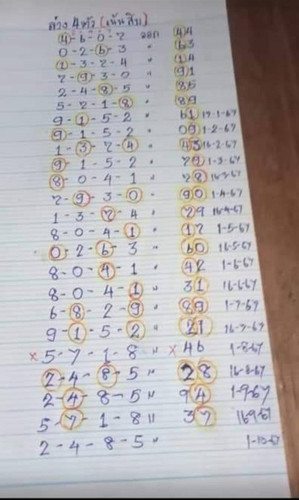 ล่าง 4 ตัว (เน้นสิบ) ออก
4-6-0-2 " 44
0-2-6-3 " 63
1-3-2-4 " 14
2-9-3-0 " 91
2-4-8-5 " 85
5-2-1-8 " 89
9-1-5-2 " 61 17-1-67
9-1-5-2 " 09 1-2-67
1-3-2-4 " 43 16-2-67
9-1-5-2 " 79 1-3-67
8-0-4-1 " 78 16-3-67
2-9-3-0 " 90 1-4-67
1-3-2-4 " 79 16-4-67
8-0-4-1 " 17
0-2-6-3 " 60 16-5-67
8-0-4-1 " 42 1-6-67
8-0-4-1 " 31 16-6-67
6-8-2-9 " 89 1-7-67
9-1-5-2 " 21 16-7-67
× 5-7-1-8 " × 46 1-8-67
2-4-8-5 " 28 16-8-67
2-4-8-5 " 94 1-9-67
5-7-1-8 " 37 16-9-67
2-4-8-5 " 1-10-67